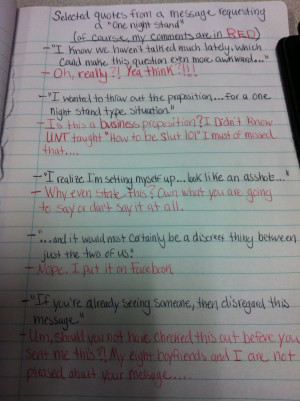 Selected quotes from a message requesting
a "One night stand"
(of course, my comments are in RED)
- "I know we haven't talked much lately, which
could make this question even more awkward..."
- Oh, really?! Yea think?!!!
- "I wanted to throw out the proposition....for a one
night stand type situation."
- Is this a business proposition? I Didn't know
UNT taught "How to be Slut 101" I must of missed
that....
- "I realize I'm setting myself up... look like an asshole..."
- Why even state this? Own what you are going
to say or don't say it at all.
- "...and it would most certainly be a discreet thing between
just the two of us."
- Nope. I put it on Facebook
- "If you're already seeing someone, then disregard this
message."
- Um, should you not have checked this out before you
sent me this?! My eight boyfriends and I are not
pleased about your message....